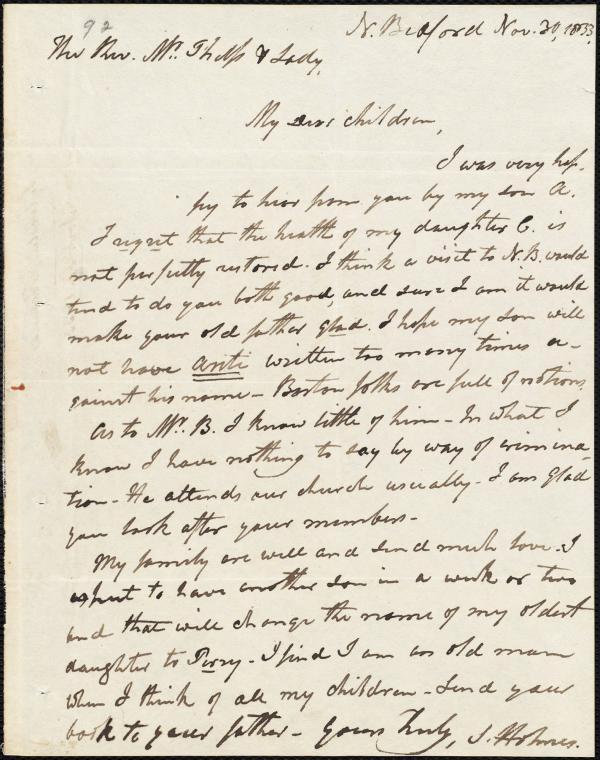 92
N. Bedford Nov. 30, 1833.
The Rev. Mr. Phelps & Lady,
My dear children,
I was very hap-
py to hear from you by my son A.
I regret that the health of my daughter C. is
not perfectly restored. I think a visit to N.B. would
tend to do you both good, and sure I am it would
make your old father glad. I hope my son will
not have anti written too many times a-
gainst his name - Boston folks are full of notions.
As to Mr. B. I know little of him - In what I
know I have nothing to say by way of crimina-
tion - He attends our church usually - I am glad
you look after your members -
My family are well and send much love. I
expect to have another son in a week or two
and that will change the name of my oldest
daughter to Perry - I find I am an old man
when I think of all my children - Send your
book to your father - Yours truly, S. Holmes.